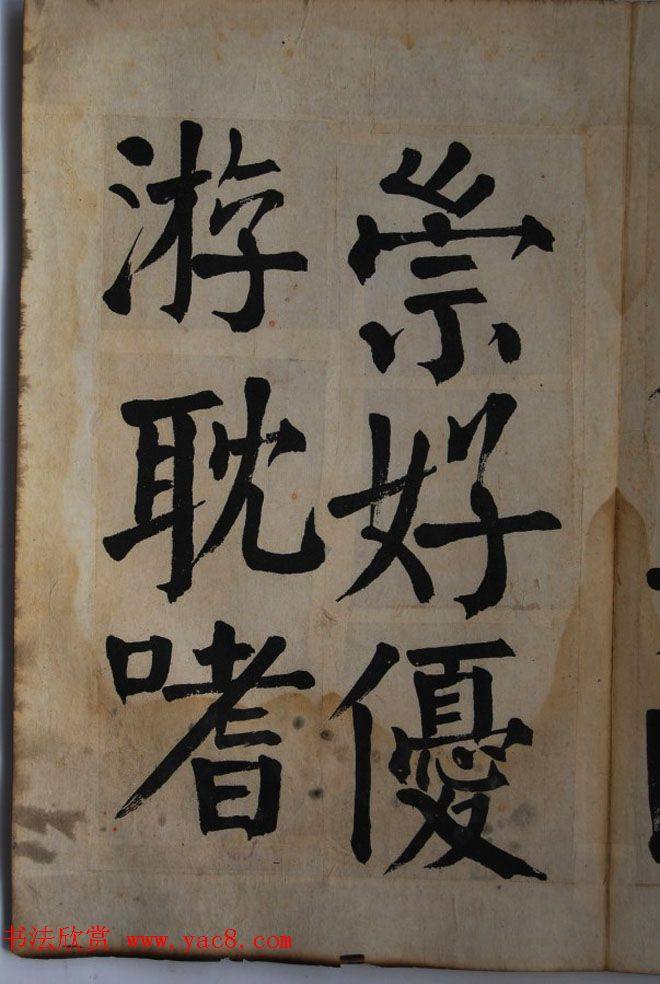 崇好優
游耽嗜
书法欣赏 www.yac8.com